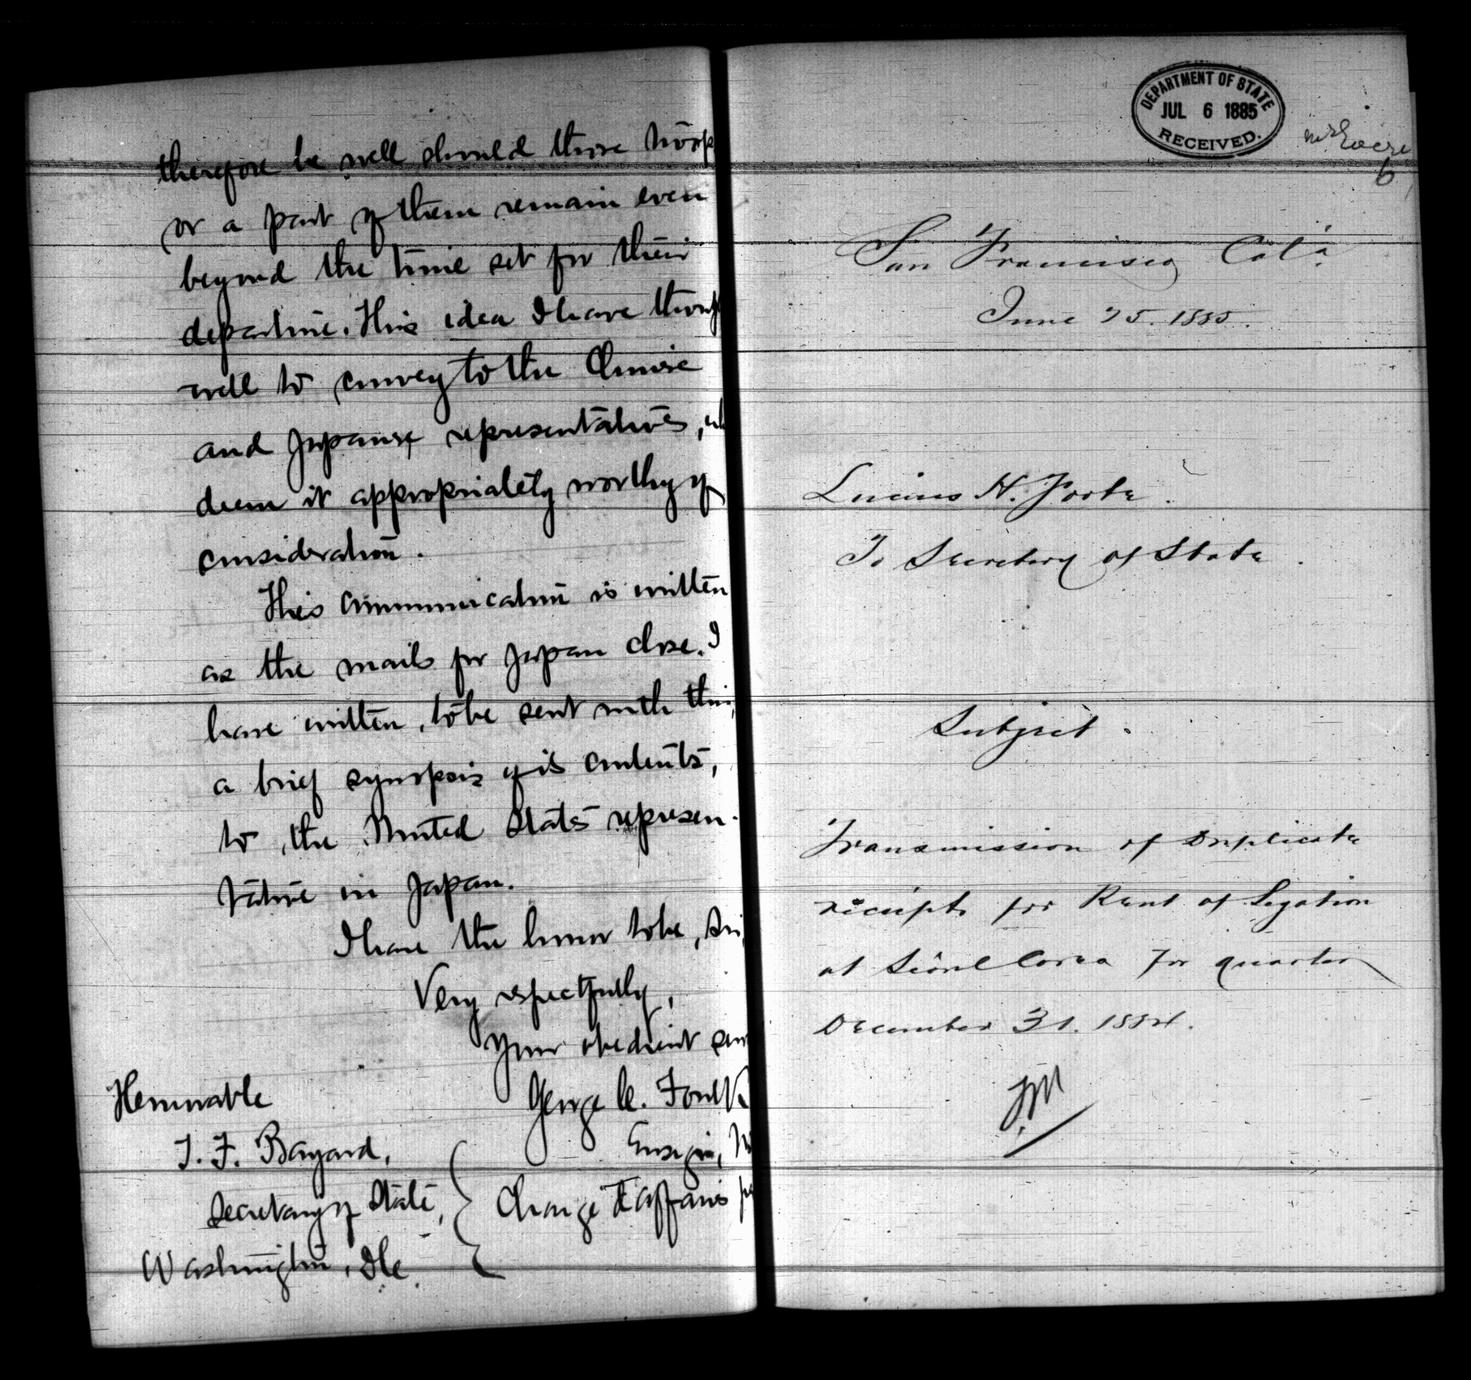 therefore be well should those troop
or a part of them remain even
beyond the time set for their
departure. This idea I have thoug
well to convey to the Chinese
and Japanese representatives, wh
deem it appropriately worthy of
consideration.
This communication is written
as the mails for Japan close. I
have written, to be sent with this,
a brief synopsis of its contents,
to the United States represen-
tative in Japan.
I have the honor to be, Sir,
Very respectfully,
Your obedient ser
George C. Foulk
Ensign,
Charge d'affaires
Honorable
T. F. Bayard,
Secretary of State,
Washington, D.C.
DEPARTMENT OF STATE
JUL 6 1885
RECEIVED.
6
San Francisco Cal'a
June 25. 1885.
Lucius H. Foote.
To Secretary of State.
Subject.
Transmission of Duplicate
receipts for Rent of Legation
at Séoul Corea for quarter
December 31. 1884.